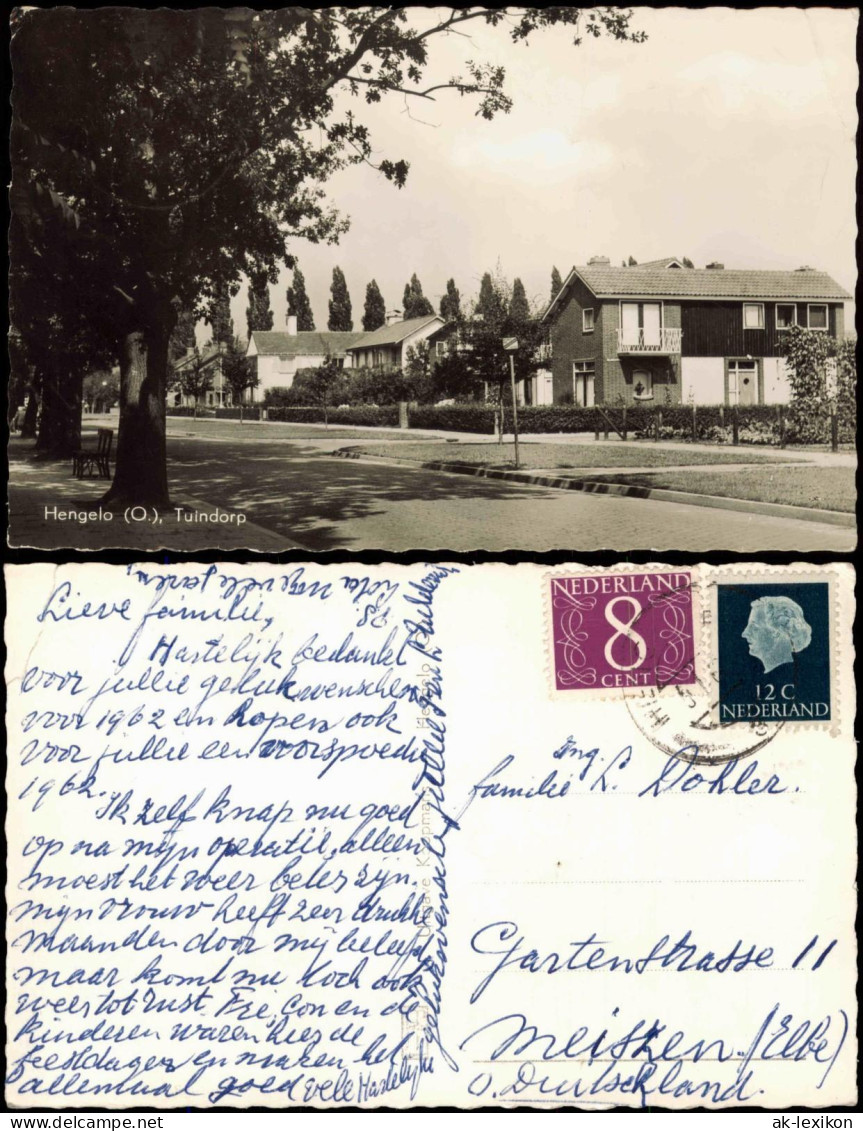 Hengelo (O.), Tuindorp
Lieve familie,
Hartelijk bedankt
voor jullie gelukwenschen
voor 1962 en hopen ook
voor jullie een voorspoedig
1962.
Ik zelf knap nu goed
op na mijn operatie, alleen
moest het weer beter zijn.
Mijn vrouw heeft zeer drukke
maanden door mij beleefd
maar komt nu toch ook
weer tot rust. Con en de
kinderen waren hier de
feestdagen en waren het
allemaal goed vele Hartelijke
gelukwenschen
Uitgave Hengelo (O.)
NEDERLAND
8
CENT
12 C
NEDERLAND
Ing.
familie L. Dohler.
Gartenstrasse 11
Meiszen. (Elbe)
O. Duitschland.
ak-lexikon